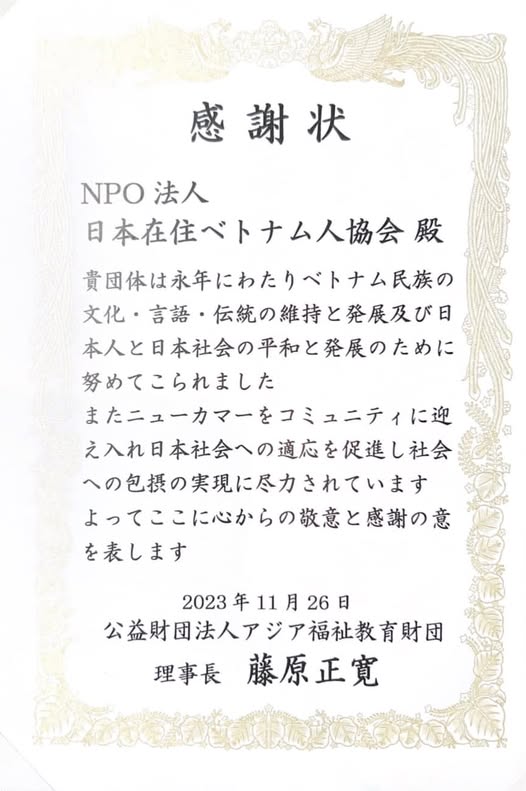 感謝状
NPO法人
日本在住ベトナム人協会 殿
貴団体は永年にわたりベトナム民族の
文化・言語・伝統の維持と発展及び日
本人と日本社会の平和と発展のために
努めてこられました
またニューカマーをコミュニティに迎
え入れ日本社会への適応を促進し社会
への包摂の実現に尽力されています
よってここに心からの敬意と感謝の意
を表します
2023年11月26日
公益財団法人アジア福祉教育財団
理事長 藤原正寛